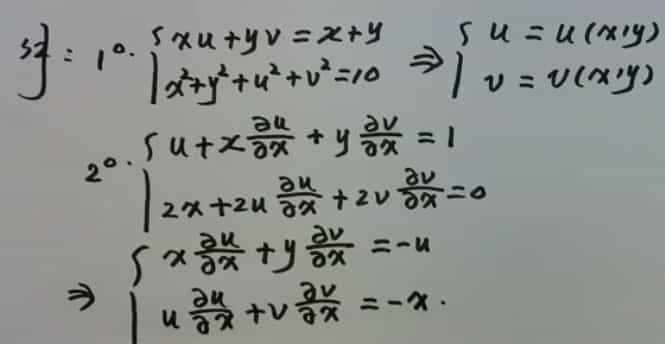 解: 1°. { xu + yv = x + y ⇒ { u = u(x,y)
x² + y² + u² + v² = 10 v = v(x,y)
2°. { u + x ∂u/∂x + y ∂v/∂x = 1
2x + 2u ∂u/∂x + 2v ∂v/∂x = 0
⇒ { x ∂u/∂x + y ∂v/∂x = -u
u ∂u/∂x + v ∂v/∂x = -x.